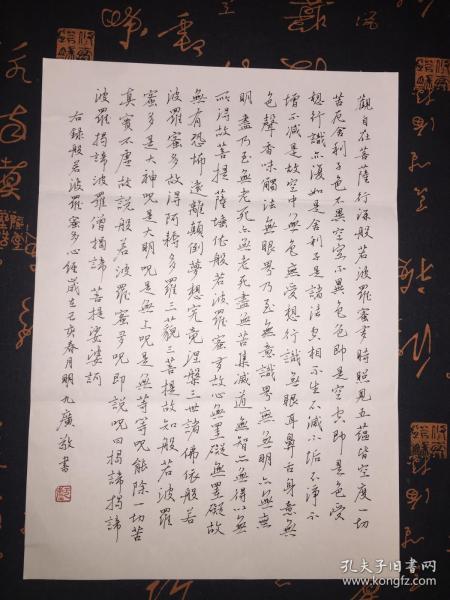 觀自在菩薩行深般若波羅蜜多時照見五蘊皆空度一切
苦厄舍利子色不異空空不異色色即是空空即是色受
想行識亦復如是舍利子是諸法空相不生不滅不垢不淨不
增不減是故空中無色無受想行識無眼耳鼻舌身意無
色聲香味觸法無眼界乃至無意識界無無明亦無無
明盡乃至無老死亦無老死盡無苦集滅道無智亦無得以無
所得故菩提薩埵依般若波羅蜜多故心無罣礙無罣礙故
無有恐怖遠離顛倒夢想究竟涅槃三世諸佛依般若
波羅蜜多故得阿耨多羅三藐三菩提故知般若波羅
蜜多是大神呪是大明呪是無上呪是無等等呪能除一切苦
真實不虛故說般若波羅蜜多呪即說呪曰揭諦揭諦
波羅揭諦波羅僧揭諦 菩提娑婆訶
右錄般若波羅蜜多心經歲在己亥春月明九廣敬書
孔夫子旧书网
www.kongfz.com